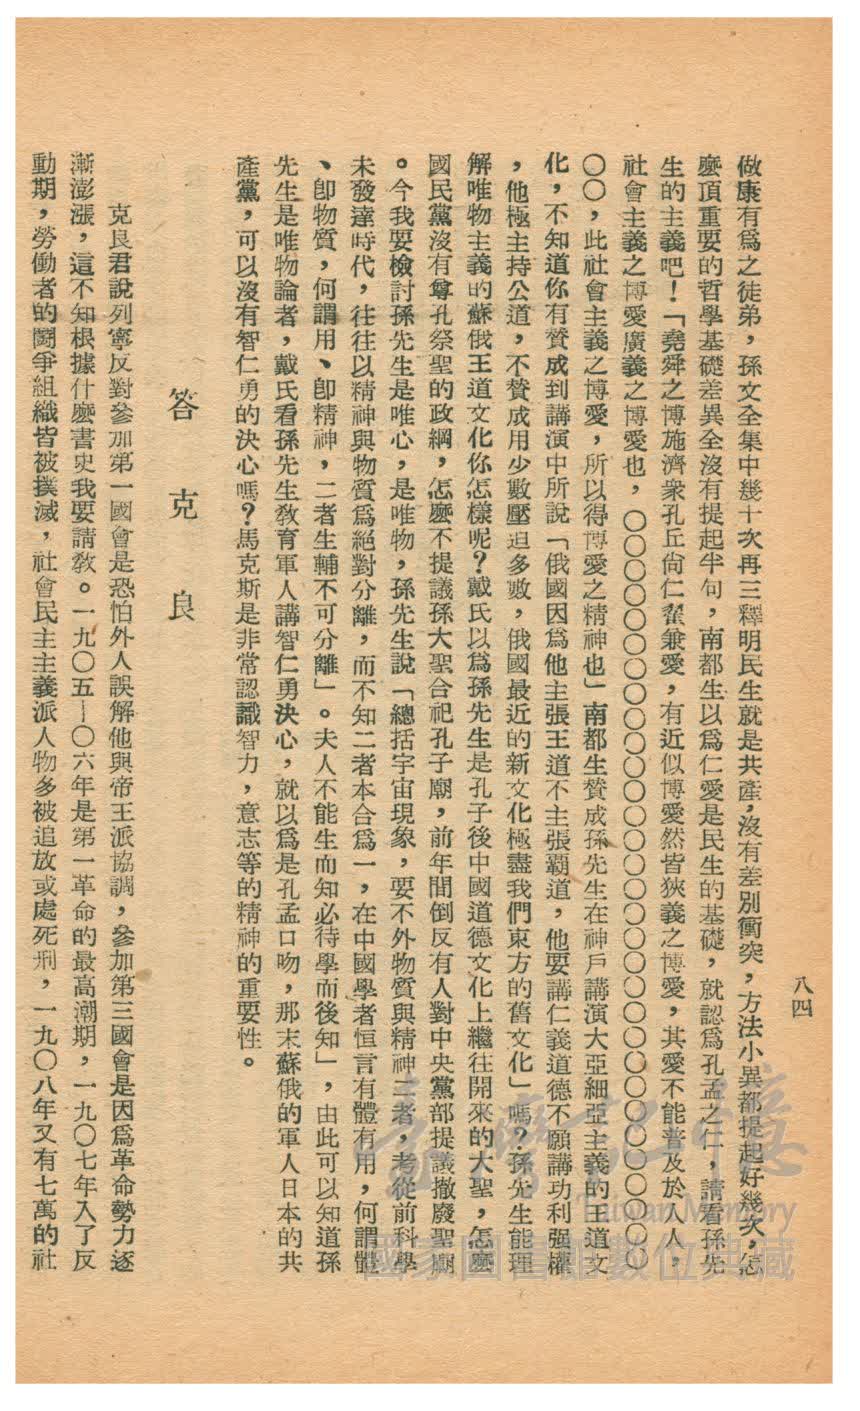 八四
做康有爲之徒弟，孫文全集中幾十次再三釋明民生就是共產，沒有差別衝突，方法小異都提起好幾次，怎
麼頂重要的哲學基礎差異全沒有提起半句，南都生以爲仁愛是民生的基礎，就認爲孔孟之仁，請看孫先
生的主義吧！「堯舜之博施濟衆孔丘尙仁翟兼愛，有近似博愛然皆狹義之博愛，其愛不能普及於人人，
社會主義之博愛廣義之博愛也，〇〇〇〇〇〇〇〇〇〇〇〇〇〇〇〇〇〇〇〇〇〇〇〇〇〇
〇〇，此社會主義之博愛，所以得博愛之精神也」南都生贊成孫先生在神戶講演大亞細亞主義的王道文
化，不知道你有贊成到講演中所說「俄國因爲他主張王道不主張覇道，他要講仁義道德不願講功利强權
，他極主持公道，不贊成用少數壓迫多數，俄國最近的新文化極盡我們東方的舊文化」嗎？孫先生能理
解唯物主義的蘇俄王道文化你怎樣呢？戴氏以爲孫先生是孔子後中國道德文化上繼往開來的大聖，怎麼
國民黨沒有尊孔祭聖的政綱，怎麼不提議孫大聖合祀孔子廟，前年間倒反有人對中央黨部提議撤廢聖廟
。今我要檢討孫先生是唯心，是唯物，孫先生說「總括宇宙現象，要不外物質與精神二者，考從前科學
未發達時代，往往以精神與物質爲絕對分離，而不知二者本合爲一，在中國學者恒言有體有用，何謂體
、卽物質，何謂用、卽精神，二者生輔不可分離」。夫人不能生而知必待學而後知」，由此可以知道孫
先生是唯物論者，戴氏看孫先生敎育軍人講智仁勇決心，就以爲是孔孟口吻，那末蘇俄的軍人日本的共
產黨，可以沒有智仁勇的決心嗎？馬克斯是非常認識智力，意志等的精神的重要性。
答克良
克良君說列寧反對參加第一國會是恐怕外人誤解他與帝王派協調，參加第三國會是因爲革命勢力逐
漸澎漲，這不知根據什麼書史我要請敎。一九〇五—〇六年是第一革命的最高潮期，一九〇七年入了反
動期，勞働者的鬪爭組織皆被撲滅，社會民主主義派人物多被追放或處死刑，一九〇八年又有七萬的社
臺灣記憶
Taiwan Memory
國家圖書館數位典藏